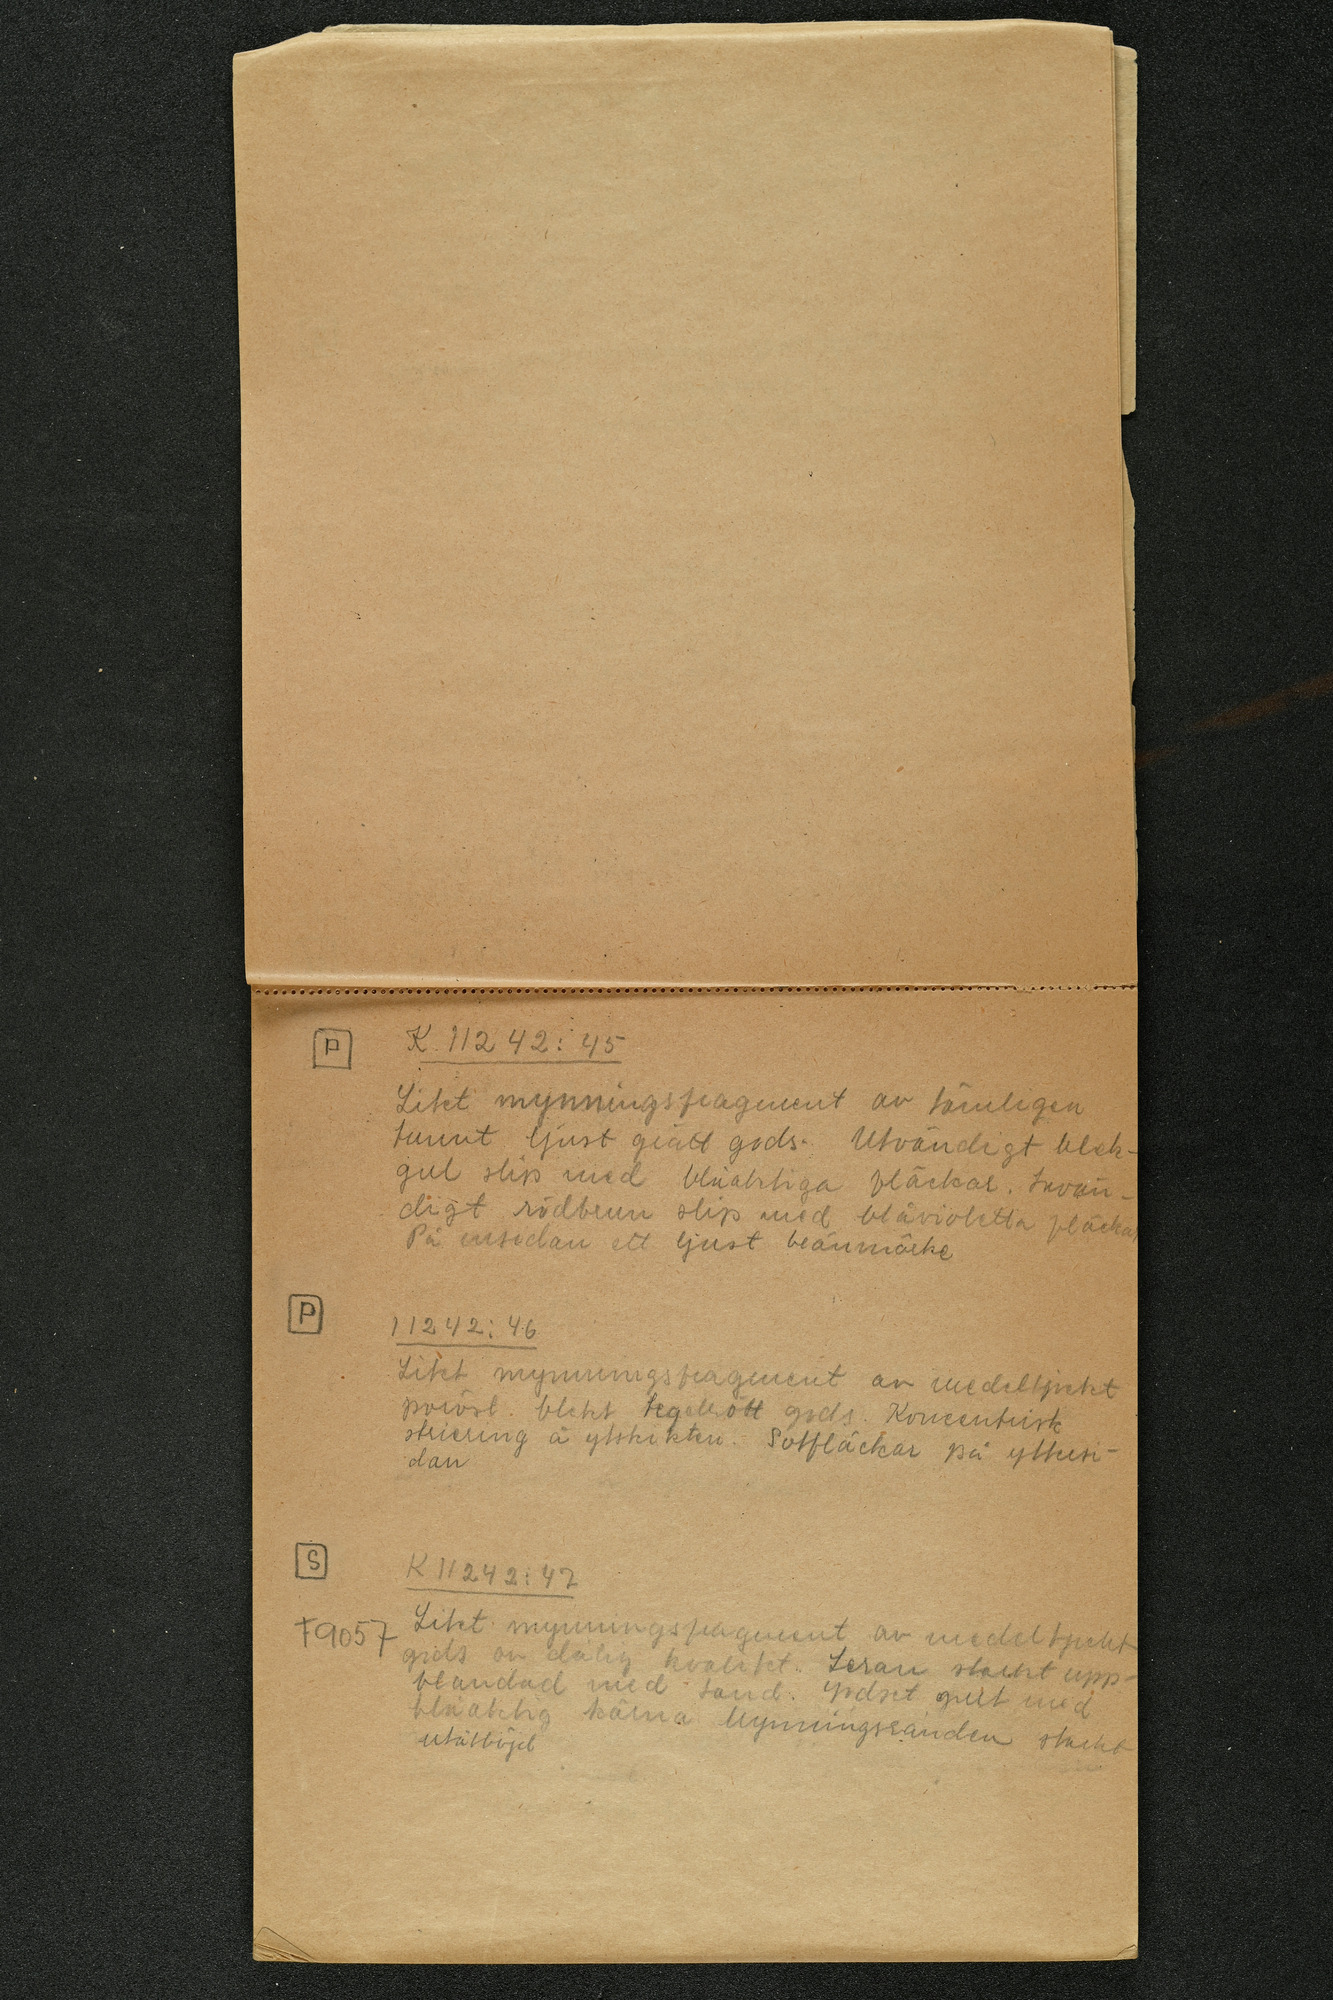 P K 11242:45
Litet mynningsfragment av tämligen
tunnt ljust grått gods. Utvändigt blek-
gul slip med blåaktiga fläckar. Invän-
digt rödbrun slip med blåvioletta fläckar
På insidan ett ljust brännmärke
P 11242:46
Litet mynningsfragment av medeltjockt
poröst blekt tegelrött gods. Koncentrisk
striering å ytskikten. Sotfläckar på yttersi-
dan
S K 11242:47
F9057 Litet mynningsfragment av medeltjockt
gods av dålig kvalitet. Leran starkt upp-
blandad med sand. Godset gult med
blåaktig kärna Mynningsranden starkt
utåtböjd